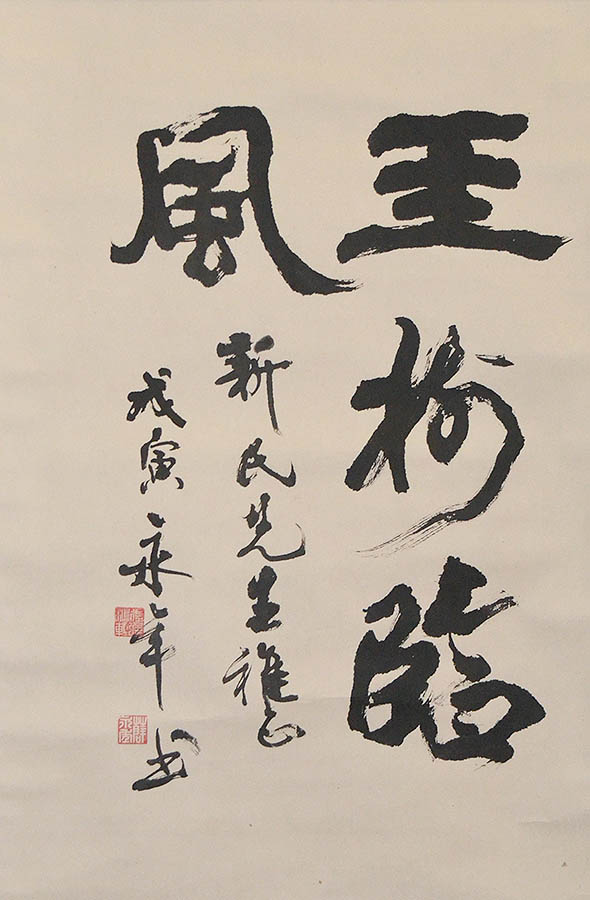 玉樹臨
風
新民先生雅正
戊寅永年書